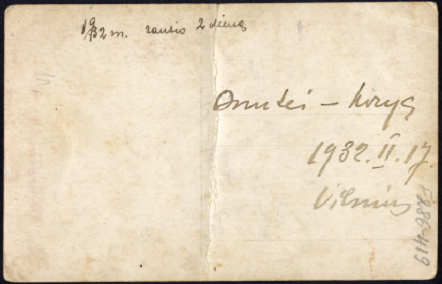 1932 m. sausio 2 dieną
Onutei –
1932.II.17.
Vilnius
FR86-419